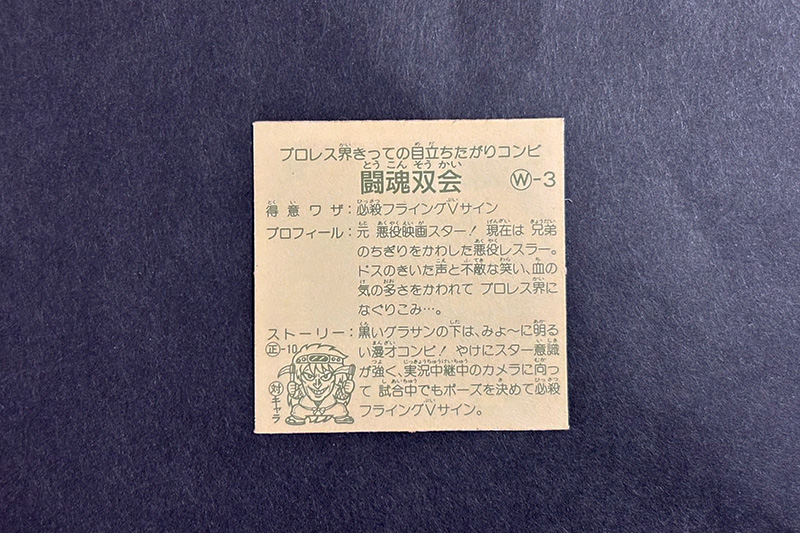 プロレス界きっての目立ちたがりコンビ
闘魂双会 Ⓦ-3
得意ワザ：必殺フライングVサイン
プロフィール：元 悪役映画スター！ 現在は 兄弟
のちぎりをかわした悪役レスラー。
ドスのきいた声と不敵な笑い、血の
気の多さをかわれて プロレス界に
なぐりこみ…。
ストーリー：黒いグラサンの下は、みょ〜に明る
い漫才コンビ！ やけにスター意識
が強く、実況中継中のカメラに向っ
て 試合中でもポーズを決めて必殺
フライングVサイン。
㊣-10
対キャラ